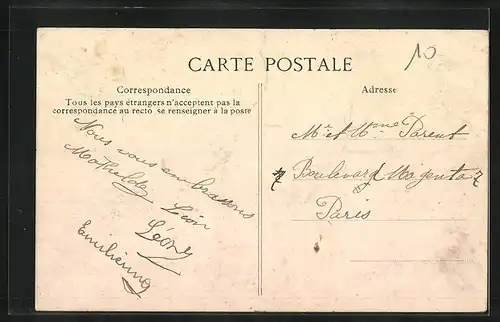 10
CARTE POSTALE
Correspondance
Tous les pays étrangers n'acceptent pas la
correspondance au recto se renseigner à la poste
Nous vous embrassons
Mathilde Léon
Léony
Emilienne
Adresse
Mr et Mme Parent
7 Boulevard Magenta 7
Paris